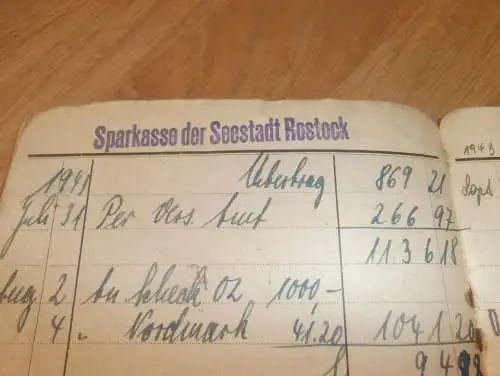 Sparkasse der Seestadt Rostock
1941 Übertrag 869 21
Juli 31 Per 266 97
1136 18
Aug 2 An Scheck 02 1000,-
4 " Nordmark 41.20 1041 20
94 98
1943
Sept